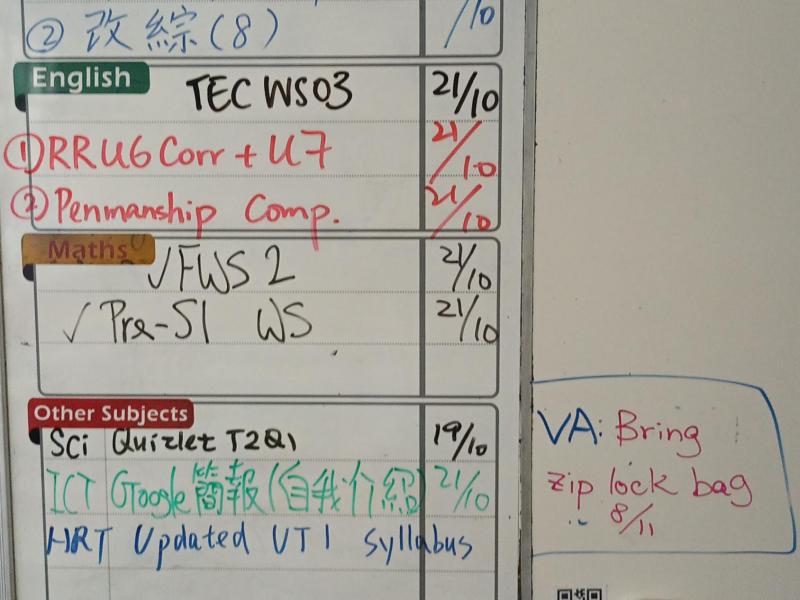 ② 改綜(8) /10
English
TEC WS03 21/10
① RR U6 Corr + U7 21/10
② Penmanship Comp. 21/10
Maths
✓FWS 2 21/10
✓ Pre-S1 WS 21/10
Other Subjects
Sci Quizlet T2Q1 19/10
ICT Google簡報(自我介紹) 21/10
HRT Updated UT1 syllabus
VA: Bring
zip lock bag
8/11